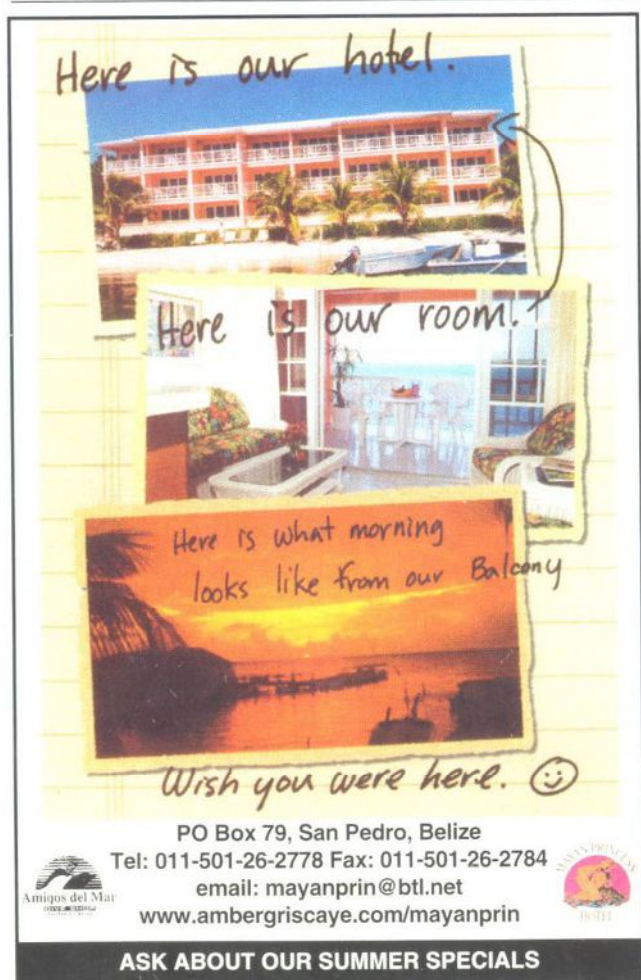 Here is our hotel.
Here is our room.
Here is what morning
looks like from our Balcony
Wish you were here.
PO Box 79, San Pedro, Belize
Tel: 011-501-26-2778 Fax: 011-501-26-2784
email: mayanprin@btl.net
www.ambergriscaye.com/mayanprin
Amigos del Mar
MAYAN PRINCESS
HOTEL
ASK ABOUT OUR SUMMER SPECIALS